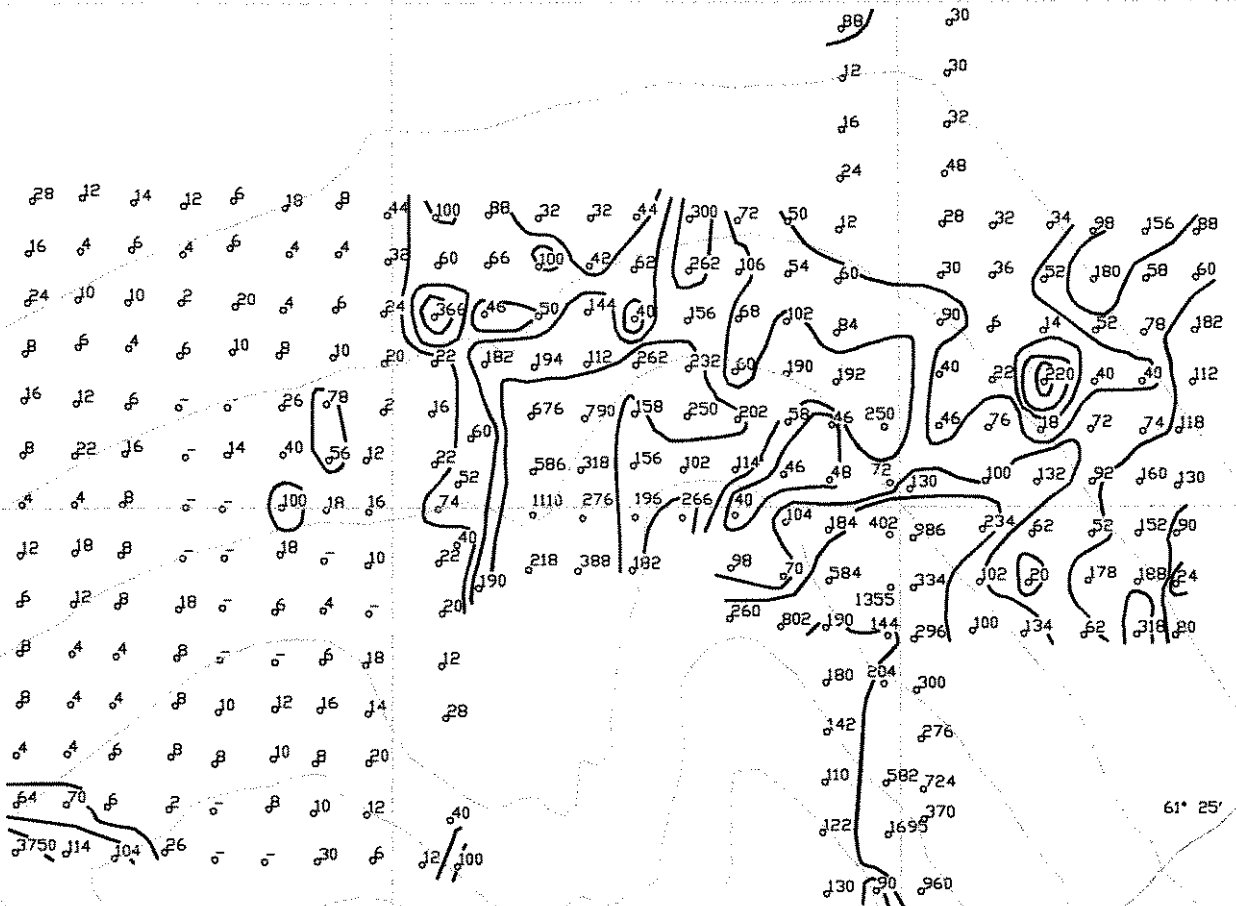 88 30
12 30
16 32
24 48
28 12 14 12 6 18 8 44 100 88 32 32 44 300 72 50 12 28 32 34 98 156 88
16 4 6 4 6 4 4 32 60 66 100 42 62 262 106 54 60 30 36 52 180 58 60
24 10 10 2 20 4 6 24 366 46 50 144 40 156 68 102 84 90 6 14 52 78 182
8 6 4 6 10 8 10 20 22 182 194 112 262 232 60 190 192 40 22 220 40 40 112
16 12 6 - - 26 78 2 16 60 676 790 158 250 202 58 46 250 46 76 18 72 74 118
8 22 16 - 14 40 56 12 22 52 586 318 156 102 114 46 48 72 130 100 132 92 160 130
4 4 8 - - 100 18 16 74 1110 276 196 266 40 104 184 402 986 234 62 52 152 90
12 18 8 - - 18 - 10 22 40 190 218 388 182 98 70 584 334 102 20 178 188 24
6 12 8 18 - 6 4 - 20 260 802 190 1355 144 296 100 134 62 318 80
8 4 4 8 - - 6 18 12 180 204 300
8 4 4 8 10 12 16 14 28 142 276
4 4 6 8 8 10 8 20 110 582 724
64 70 6 2 - 8 10 12 40 122 1695 370 61° 25′
3750 114 104 26 - - 30 6 12 100 130 90 960